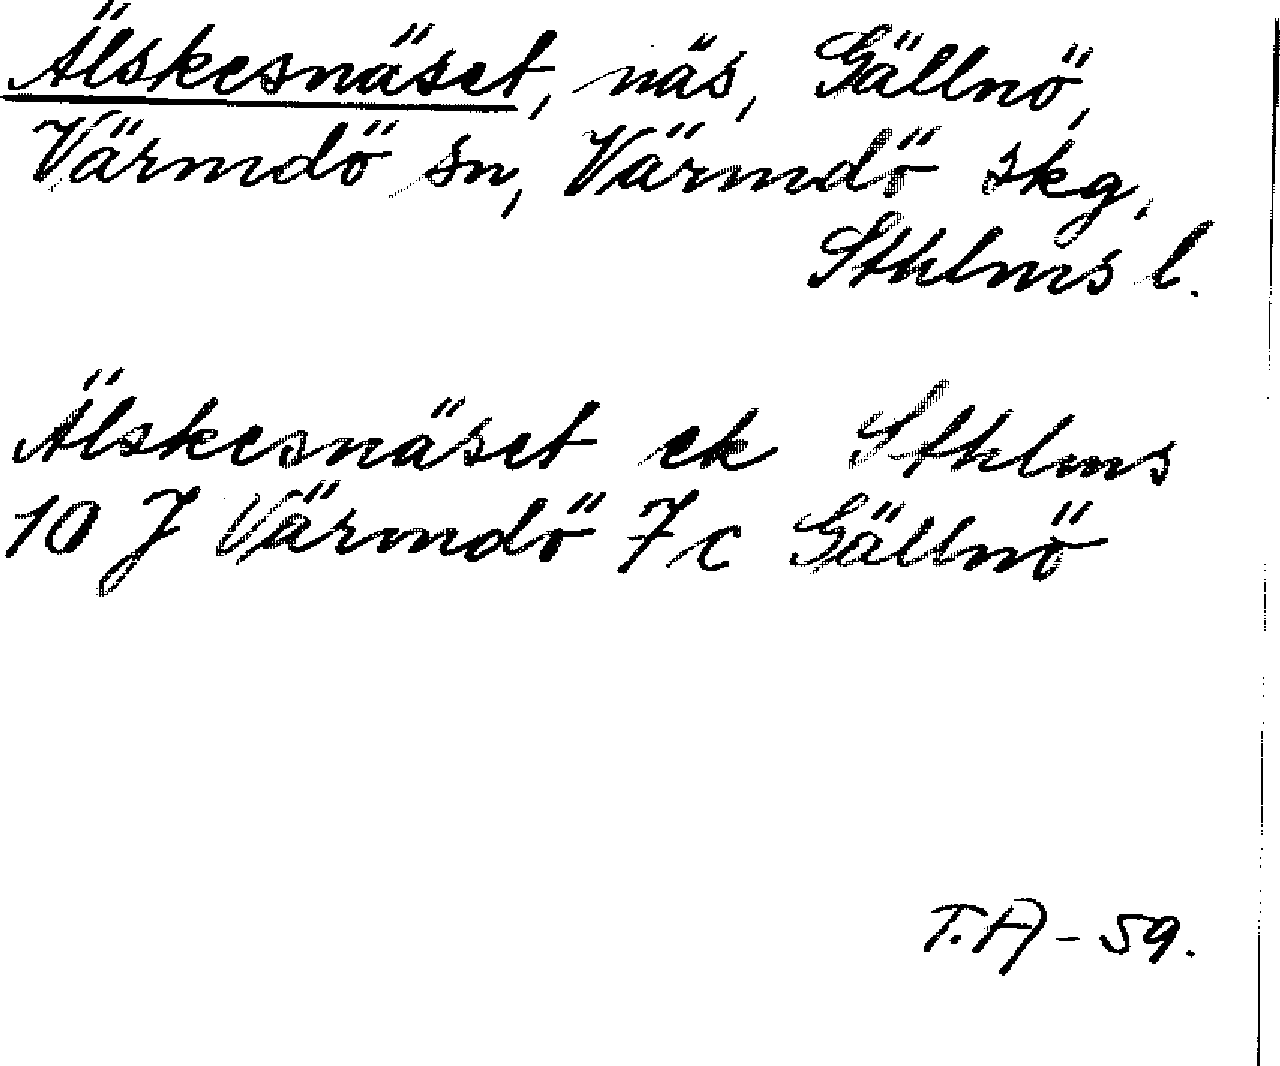 Älskesnäset, näs, Gällnö,
Värmdö sn, Värmdö skg.
Sthlms l.
Älskesnäset ek Sthlms
10 J Värmdö 7c Gällnö
T.A - 59.